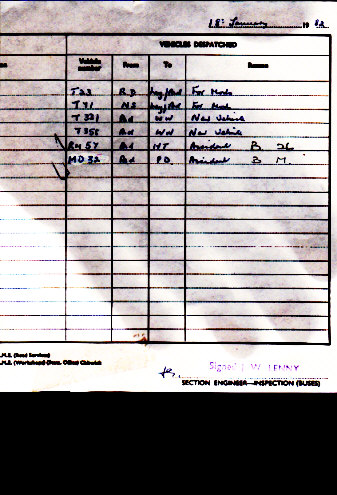 18th January 19 82
VEHICLES DESPATCHED
Vehicle number From To Reason
T 23 RD For Mods
T 31 NS For Mods
T 331 Bd WN New Vehicle
T 355 Bd WN New Vehicle
RM 57 Bd NT Accident B
MD 32 Bd PD Accident B M
L.M.E. (Road Services)
L.M.E. (Workshops) Divn. Office) Chiswick
Signed J. W. LENNY
SECTION ENGINEER—INSPECTION (BUSES)